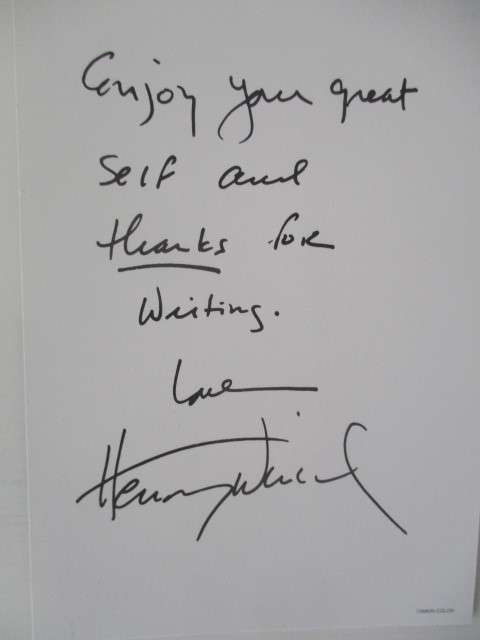 Enjoy your great
self and
thanks for
writing.
Love
Henry Winkl